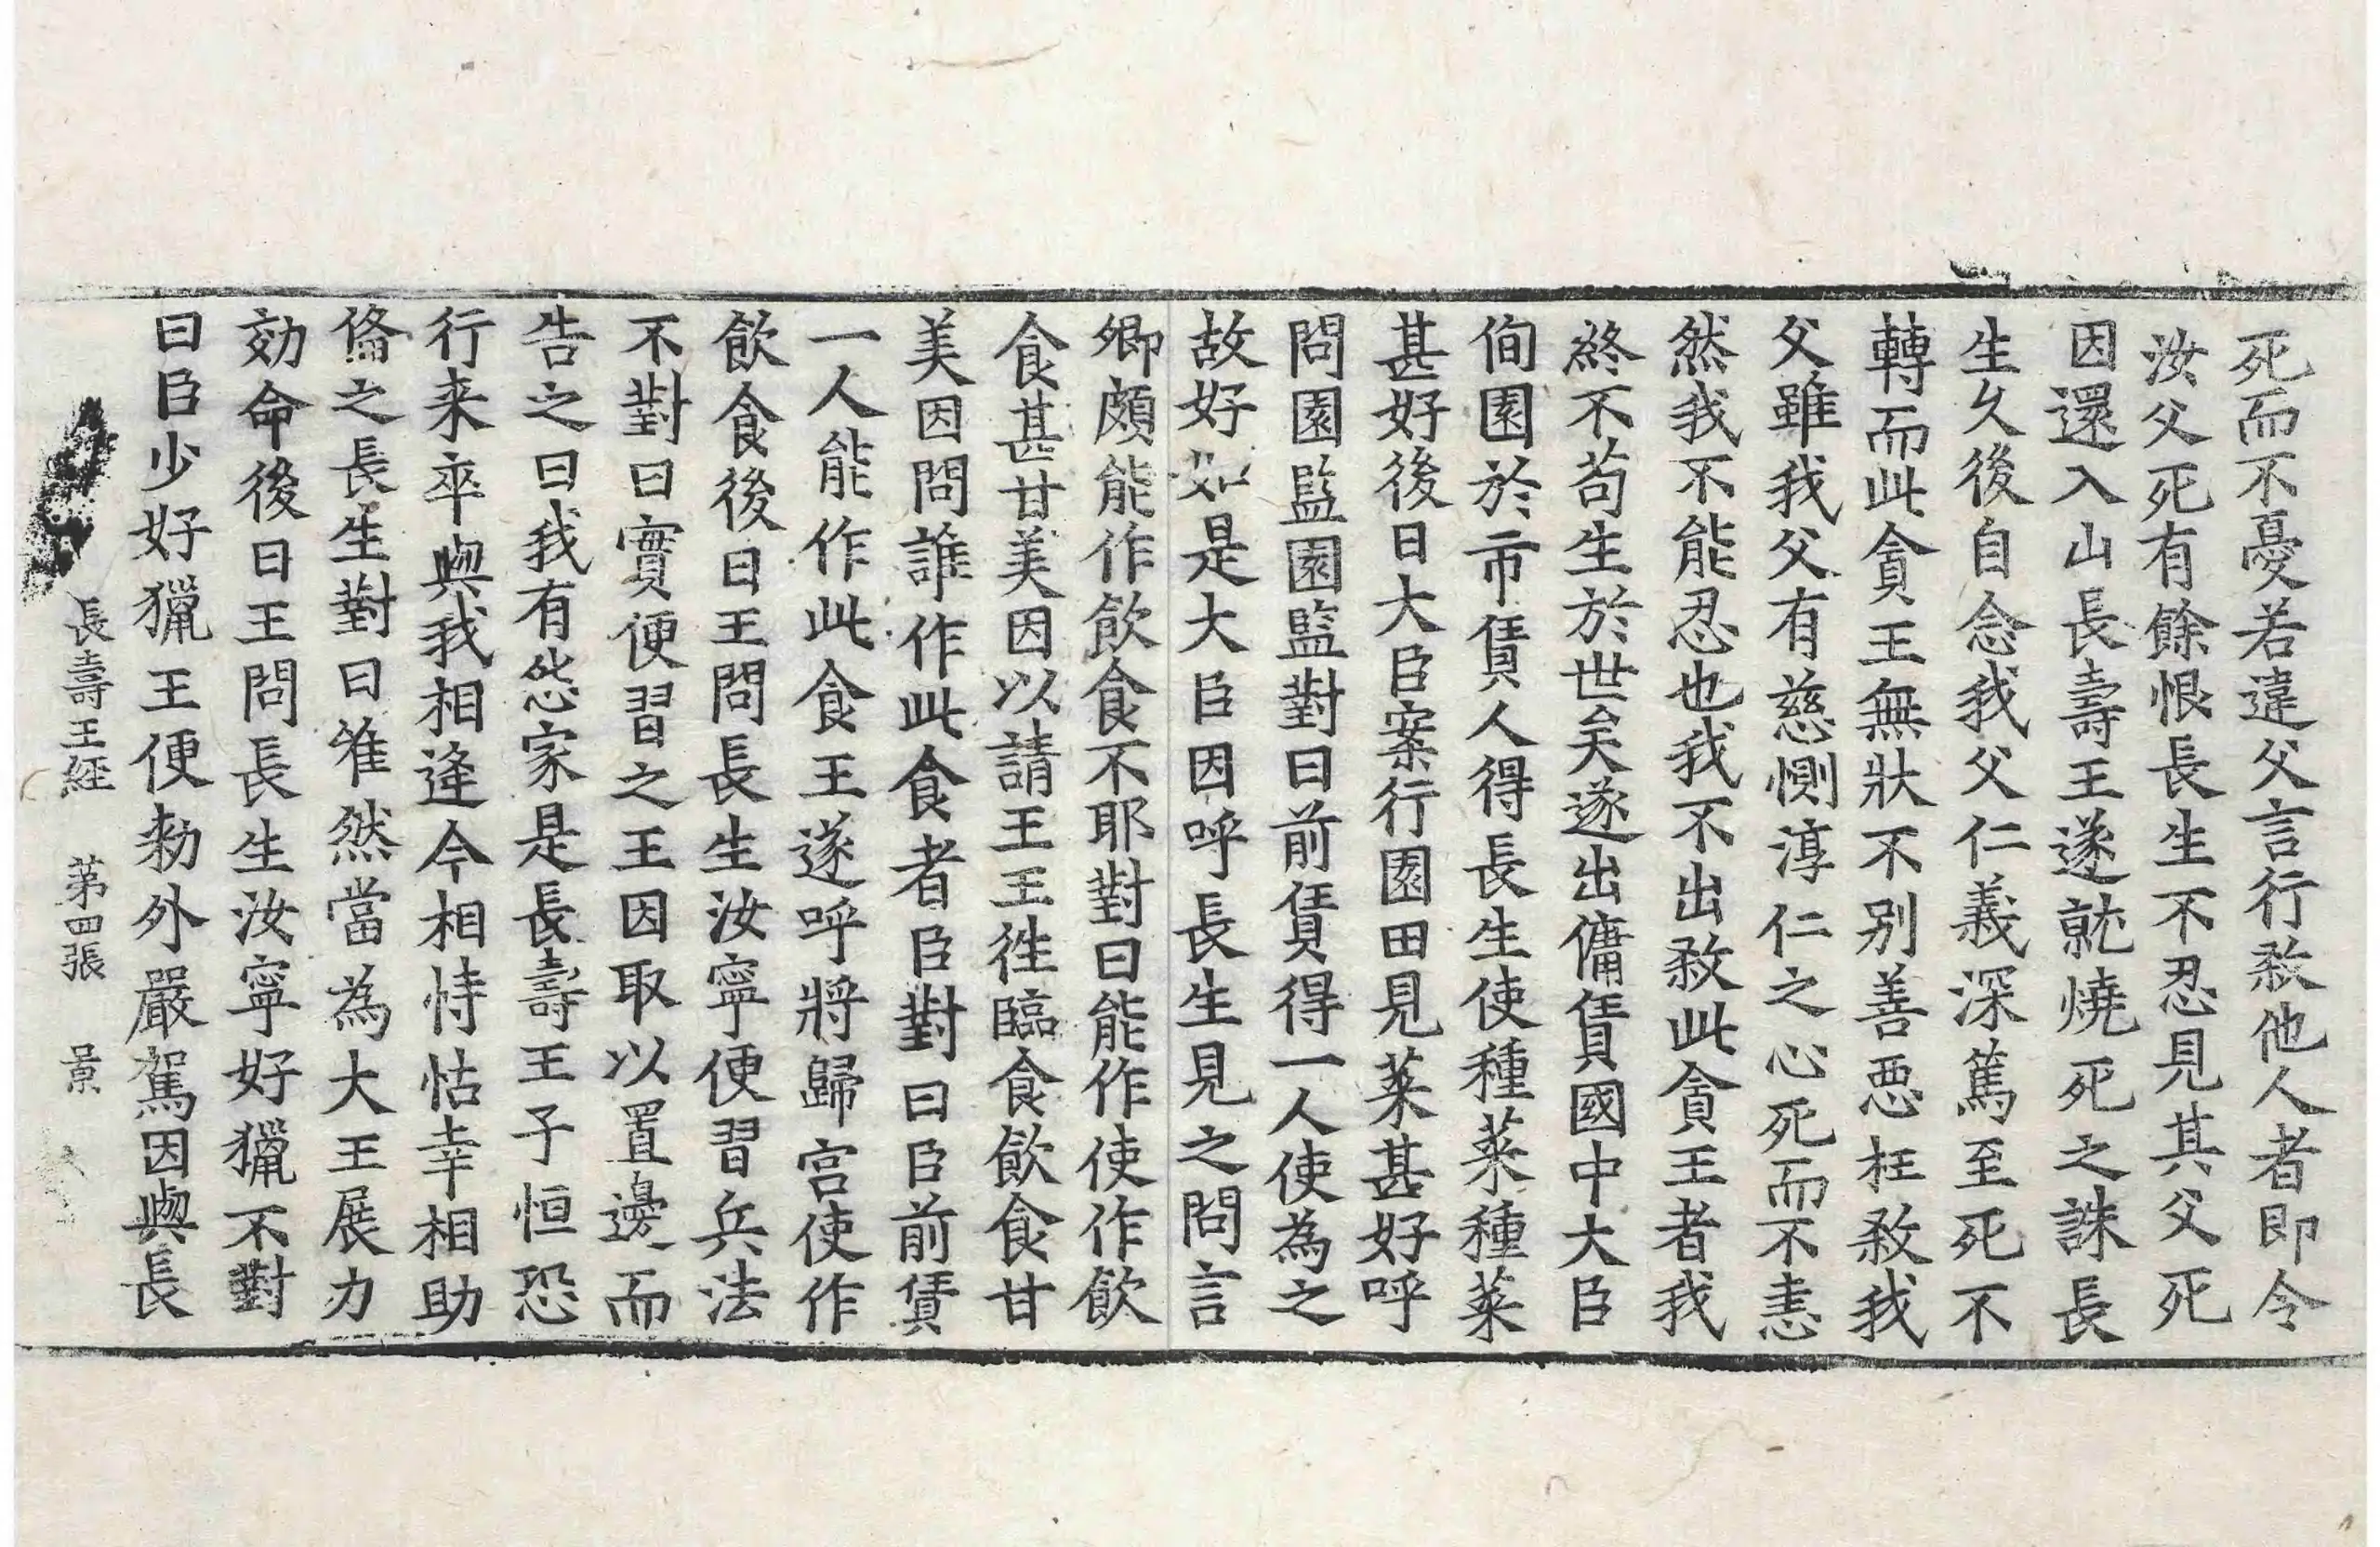 死而不憂若違父言行煞他人者即令
汝父死有餘恨長生不忍見其父死
因還入山長壽王遂就燒死之誅長
生久後自念我父仁義深篤至死不
轉而此貪王無狀不別善惡枉煞我
父雖我父有慈惻淳仁之心死而不恚
然我不能忍也我不出煞此貪王者我
終不苟生於世矣遂出傭賃國中大臣
徇園於市賃人得長生使種菜種菜
甚好後日大臣案行園田見菜甚好呼
問園監園監對曰前賃得一人使為之
故好如是大臣因呼長生見之問言
卿頗能作飲食不耶對曰能作使作飲
食甚甘美因以請王王往臨食飲食甘
美因問誰作此食者臣對曰臣前賃
一人能作此食王遂呼將歸宮使作
飲食後日王問長生汝寧便習兵法
不對曰實便習之王因取以置邊而
告之曰我有怨家是長壽王子恒恐
行来卒與我相逢今相恃怙幸相助
俻之長生對曰唯然當為大王展力
効命後日王問長生汝寧好獵不對
曰臣少好獵王便勑外嚴駕因與長
長壽王經 苐四張 景